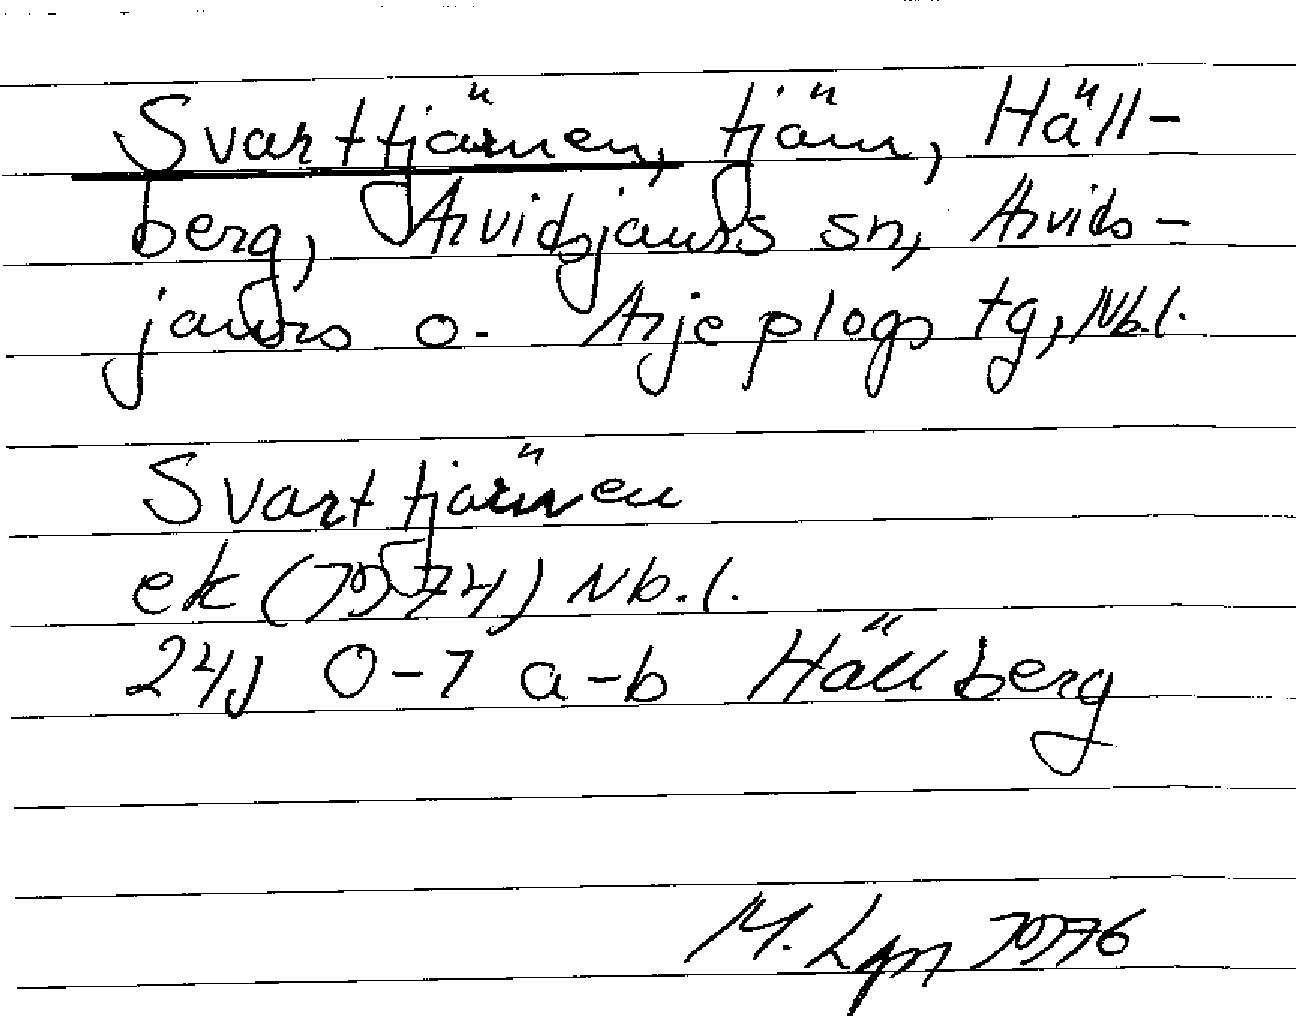 Svarttjärnen, tjärn, Häll-
berg, Arvidsjaurs sn, Arvids-
jaurs o. Arjeplogs tg, Nb.l.
Svarttjärnen
ek (1974) Nb.l.
24J 0-1 a-b Hällberg
M. Lgn 1976